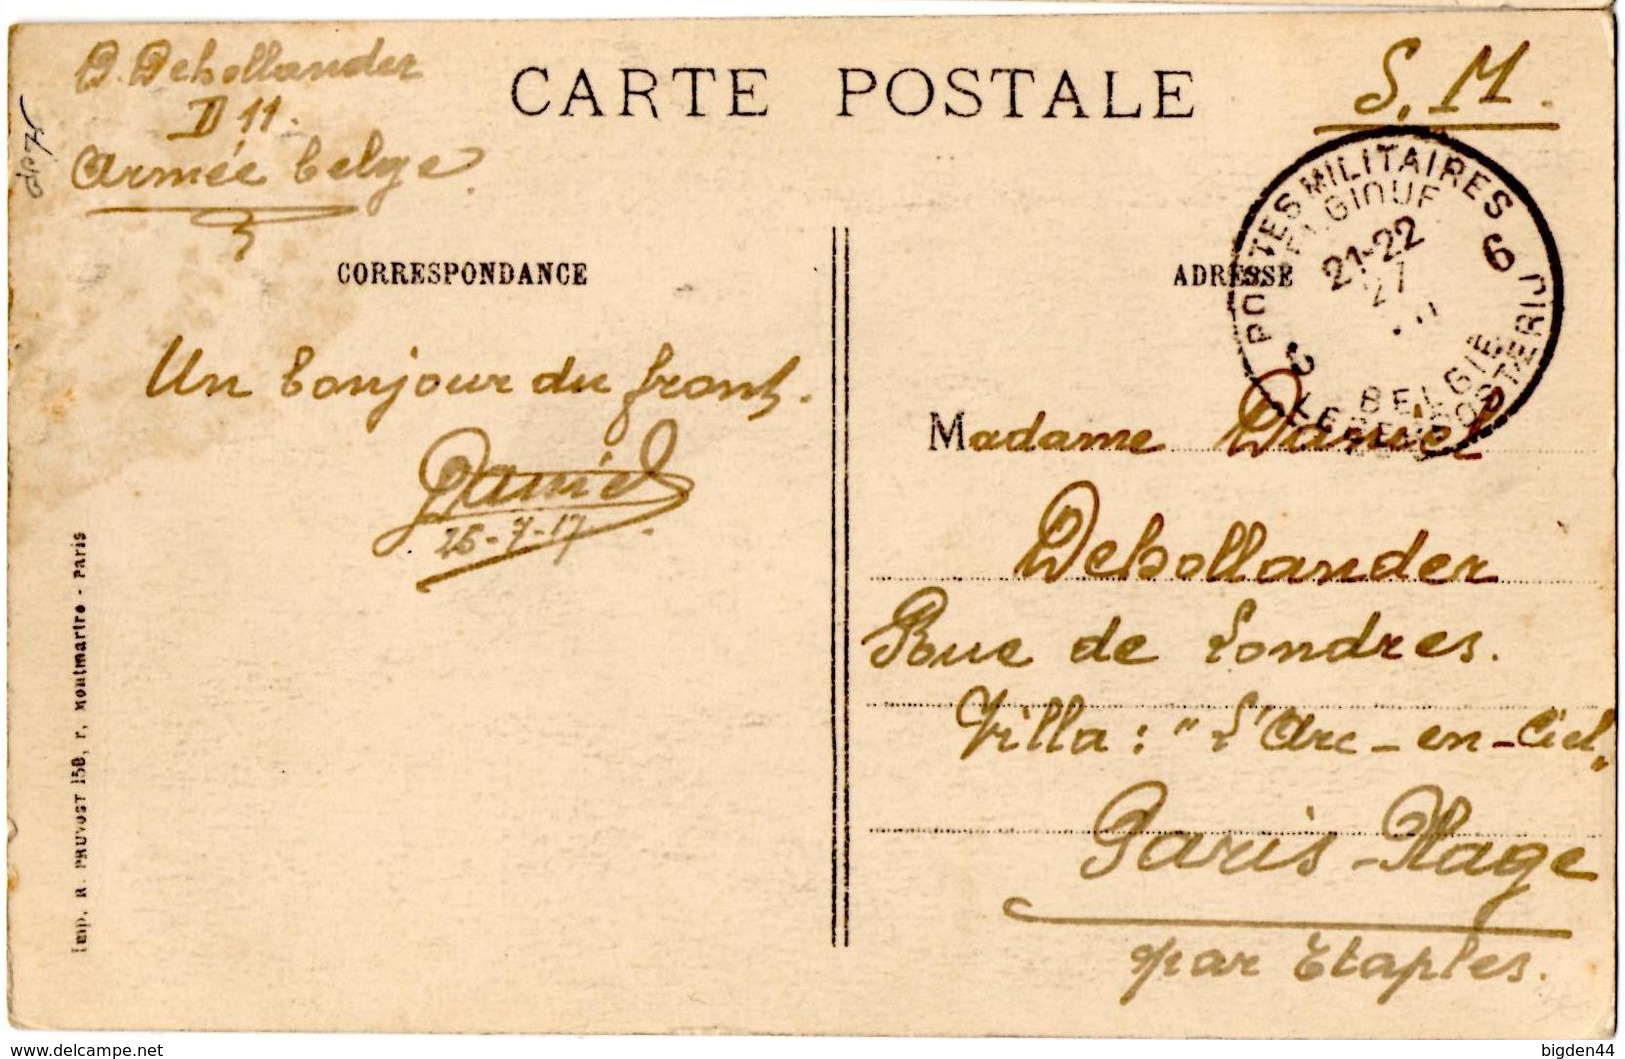 D. Dehollander
D 11.
Armée belge.
CARTE POSTALE
S. M.
CORRESPONDANCE
ADRESSE
POSTES MILITAIRES
BELGIQUE
21-22
27
6
6
BELGIE
LEGERPOSTERIJ
Un bonjour du front.
Daniel
25-7-17
Madame Daniel
Dehollander
Rue de Londres.
Villa : "L'Arc-en-Ciel"
Paris-Plage
par Etaples.
Imp. R. PRUVOST 158, r. Montmartre - Paris
www.delcampe.net
bigden44